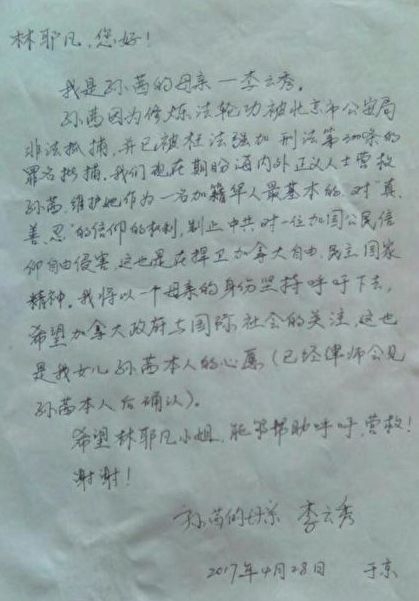 林耶凡,您好!
我是孙茜的母亲—李云秀。
孙茜因为修炼法轮功被北京市公安局
非法抓捕,并已被枉法强加刑法第300条的
罪名批捕。我们现在期盼海内外正义人士营救
孙茜,维护她作为一名加籍华人最基本的、对“真、
善、忍”的信仰的权利,制止中共对一位加国公民信
仰自由侵害,这也是在捍卫加拿大自由、民主国家
精神。我将以一个母亲的身份坚持呼吁下去,
希望加拿大政府与国际社会的关注,这也
是我女儿孙茜本人的心愿(已经律师会见
孙茜本人后确认)。
希望林耶凡小姐,能够帮助呼吁,营救!
谢谢!
孙茜的母亲 李云秀
2017年4月28日 于京